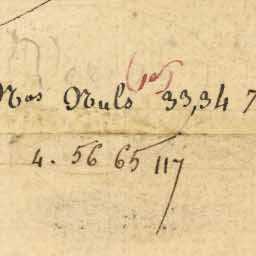 Nos Nuls 33,34 7
4. 56 65 117